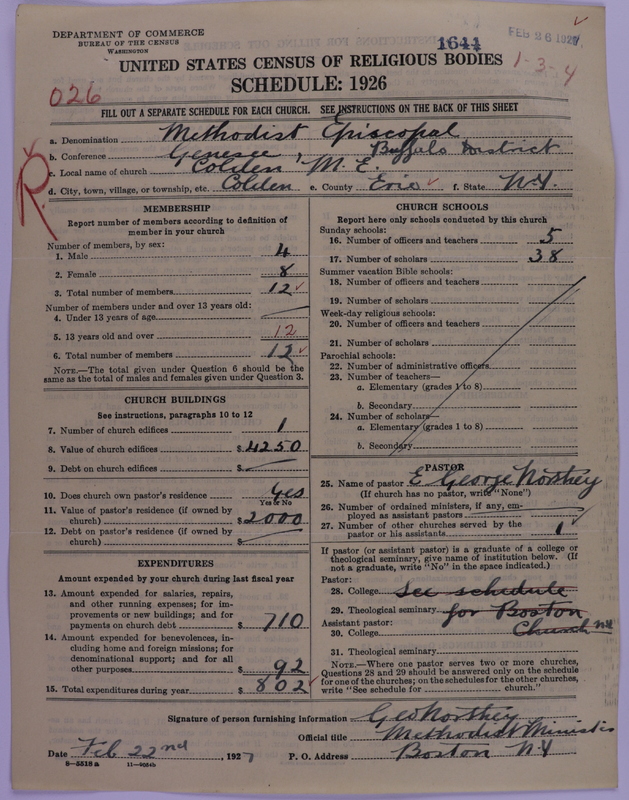 DEPARTMENT OF COMMERCE
BUREAU OF THE CENSUS
WASHINGTON
1644
FEB 26 1927
UNITED STATES CENSUS OF RELIGIOUS BODIES
1-3-4
SCHEDULE: 1926
026
FILL OUT A SEPARATE SCHEDULE FOR EACH CHURCH. SEE INSTRUCTIONS ON THE BACK OF THIS SHEET
a. Denomination Methodist Episcopal
b. Conference Genesee, Buffalo District
c. Local name of church Colden M. E.
d. City, town, village, or township, etc. Colden e. County Erie f. State N.Y.
R.
MEMBERSHIP
Report number of members according to definition of member in your church
Number of members, by sex:
1. Male 4
2. Female 8
3. Total number of members 12
Number of members under and over 13 years old:
4. Under 13 years of age
5. 13 years old and over 12
6. Total number of members 12
NOTE.—The total given under Question 6 should be the same as the total of males and females given under Question 3.
CHURCH BUILDINGS
See instructions, paragraphs 10 to 12
7. Number of church edifices 1
8. Value of church edifices $4250
9. Debt on church edifices $
10. Does church own pastor's residence Yes
Yes or No
11. Value of pastor's residence (if owned by church) $2000
12. Debt on pastor's residence (if owned by church) $
EXPENDITURES
Amount expended by your church during last fiscal year
13. Amount expended for salaries, repairs, and other running expenses; for improvements or new buildings; and for payments on church debt $ 710
14. Amount expended for benevolences, including home and foreign missions; for denominational support; and for all other purposes $ 92
15. Total expenditures during year $ 802
CHURCH SCHOOLS
Report here only schools conducted by this church
Sunday schools:
16. Number of officers and teachers 5
17. Number of scholars 38
Summer vacation Bible schools:
18. Number of officers and teachers
19. Number of scholars
Week-day religious schools:
20. Number of officers and teachers
21. Number of scholars
Parochial schools:
22. Number of administrative officers
23. Number of teachers—
a. Elementary (grades 1 to 8)
b. Secondary
24. Number of scholars—
a. Elementary (grades 1 to 8)
b. Secondary
PASTOR
25. Name of pastor E George Northey
(If church has no pastor, write "None")
26. Number of ordained ministers, if any, employed as assistant pastors
27. Number of other churches served by the pastor or his assistants 1
If pastor (or assistant pastor) is a graduate of a college or theological seminary, give name of institution below. (If not a graduate, write "No" in the space indicated.)
Pastor:
28. College See schedule
29. Theological seminary for Boston
Assistant pastor:
30. College Church NY
31. Theological seminary
NOTE.—Where one pastor serves two or more churches, Questions 28 and 29 should be answered only on the schedule for one of the churches; on the schedules for the other churches, write "See schedule for church."
Signature of person furnishing information Geo Northey
Official title Methodist Minister
Date Feb 22nd, 1927 P. O. Address Boston N.Y
8-5518 a